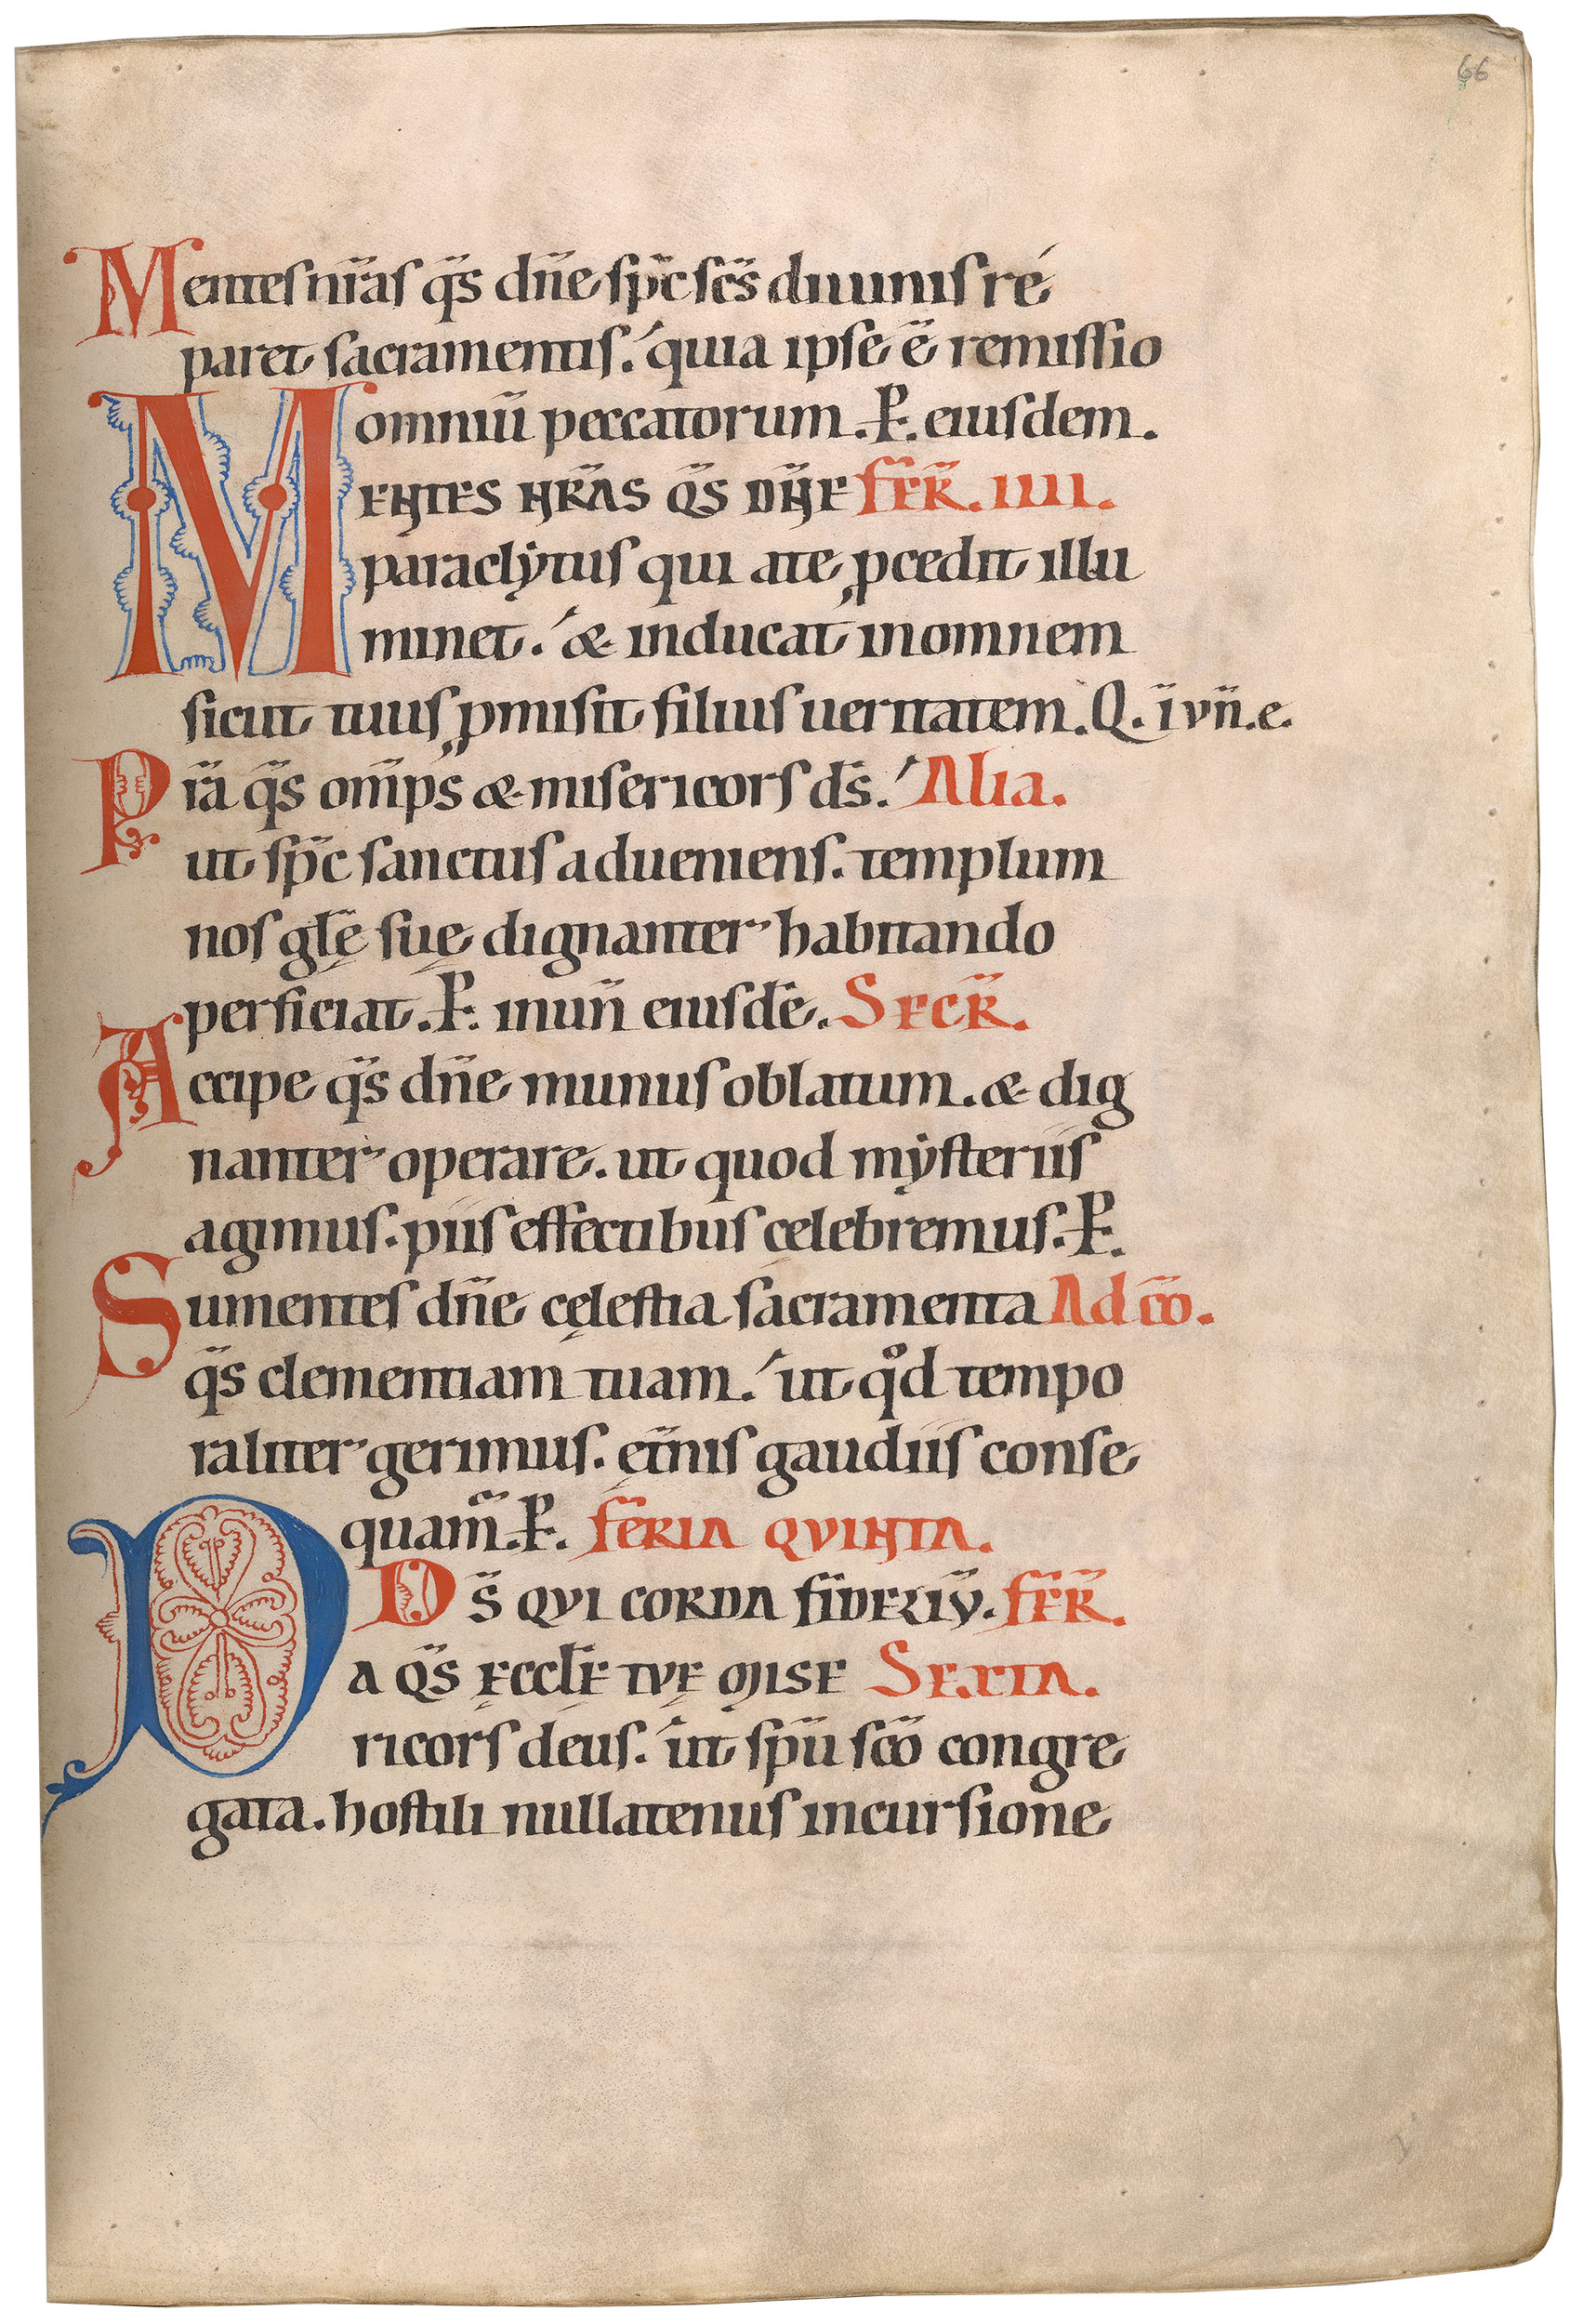 66
Mentes nr̄as q̄s dn̄e sp̄c sc̄s diuinis re
paret sacramentis. quia ipse ē remissio
omniū peccatorum. P̶. eiusdem.
MENTES NR̄AS Q̄S DN̄E FER̄. IIII.
paraclytus qui a te ꝓcedit illu
minet. & inducat in omnem
sicut tuus ꝓmisit filius ueritatem. Q. ī vn̄. e.
Pr̄a q̄s om̄ps & misericors ds̄. Alia.
ut sp̄c sanctus adueniens. templum
nos gl̄ę suę dignanter habitando
perficiat. P̶. in un̄ eiusdē. SECR̄.
Accipe q̄s dn̄e munus oblatum. & dig
nanter operare. ut quod mysteriis
agimus. piis effectibus celebremus. P̶.
Sumentes dn̄e cęlestia sacramenta Ad cō.
q̄s clementiam tuam. ut qd̊ tempo
raliter gerimus. ęt̄nis gaudiis conse
quam̄. P̶. FERIA QVINTA.
DS̄ QVI CORDA FIDELIV̄. FER̄.
DA Q̄S ĘCCL̄Ę TVĘ MISE SEXTA.
ricors deus. ut sp̄u sc̄o congre
gata. hostili nullatenus incursione